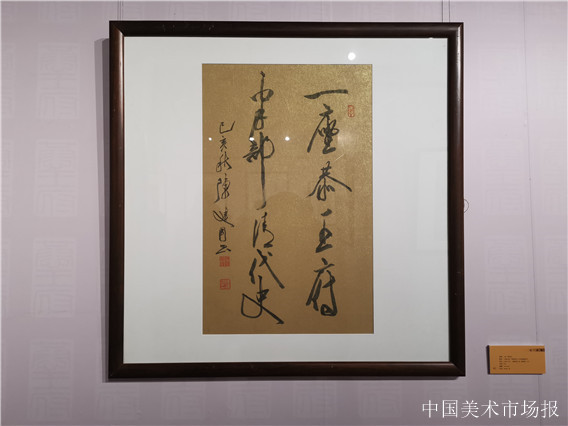 一座恭王府
半部清代史
己亥秋陳
中国美术市场报